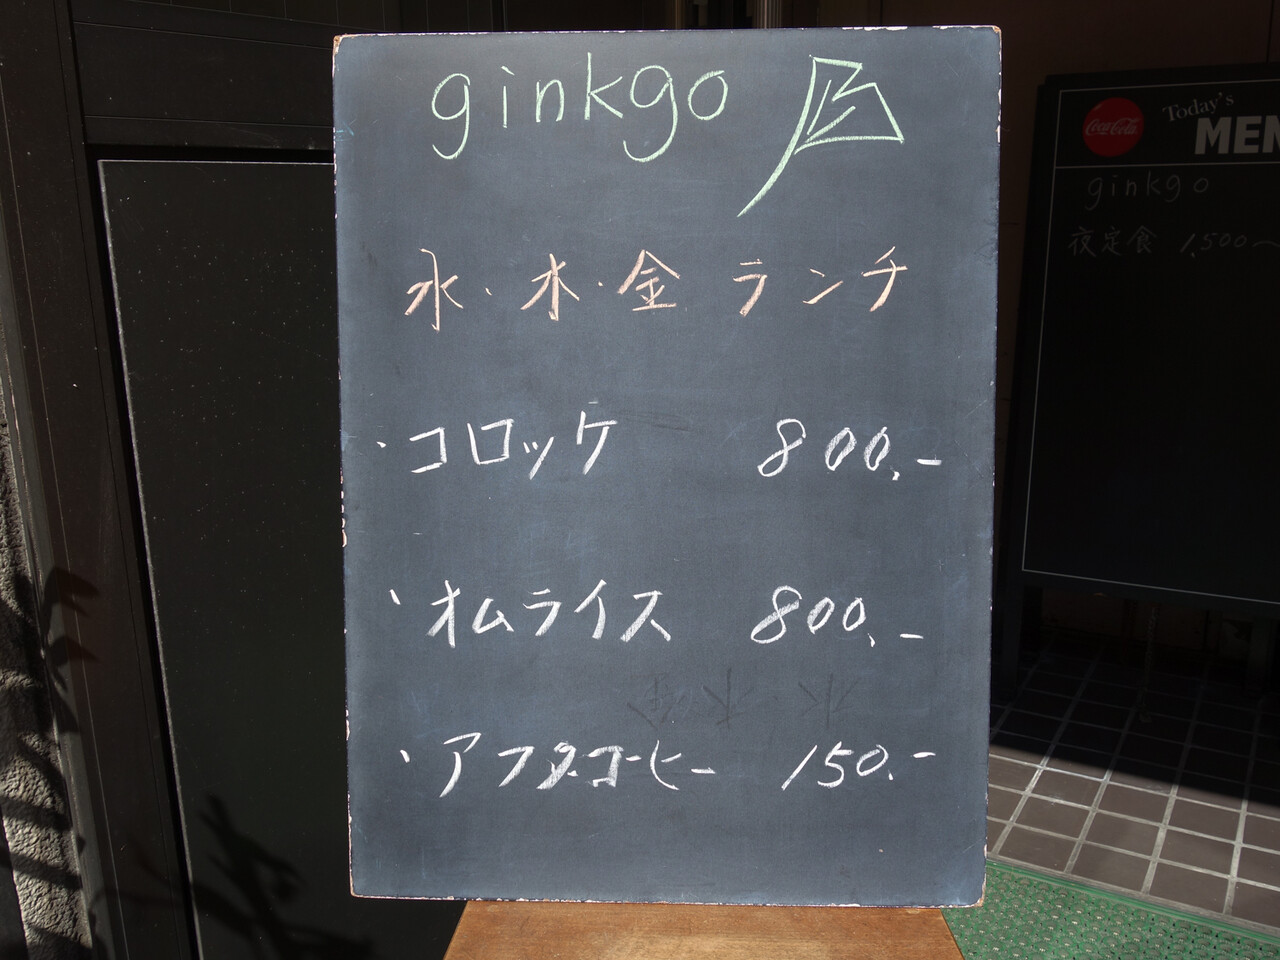 ginkgo
水・木・金 ランチ
・コロッケ 800.-
・オムライス 800.-
・アフタコーヒー 150.-
Coca-Cola
Today's
MEN
ginkgo
夜定食 1,500〜